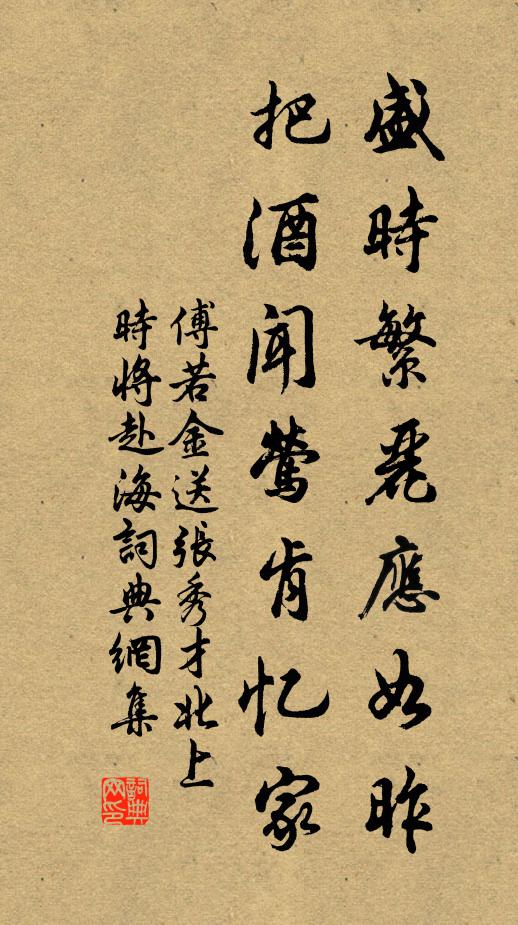 盛時繁麗應如昨
把酒聞鶯肯忆家
傅若金送張秀才北上
時將赴海詞典網集
詞典网印